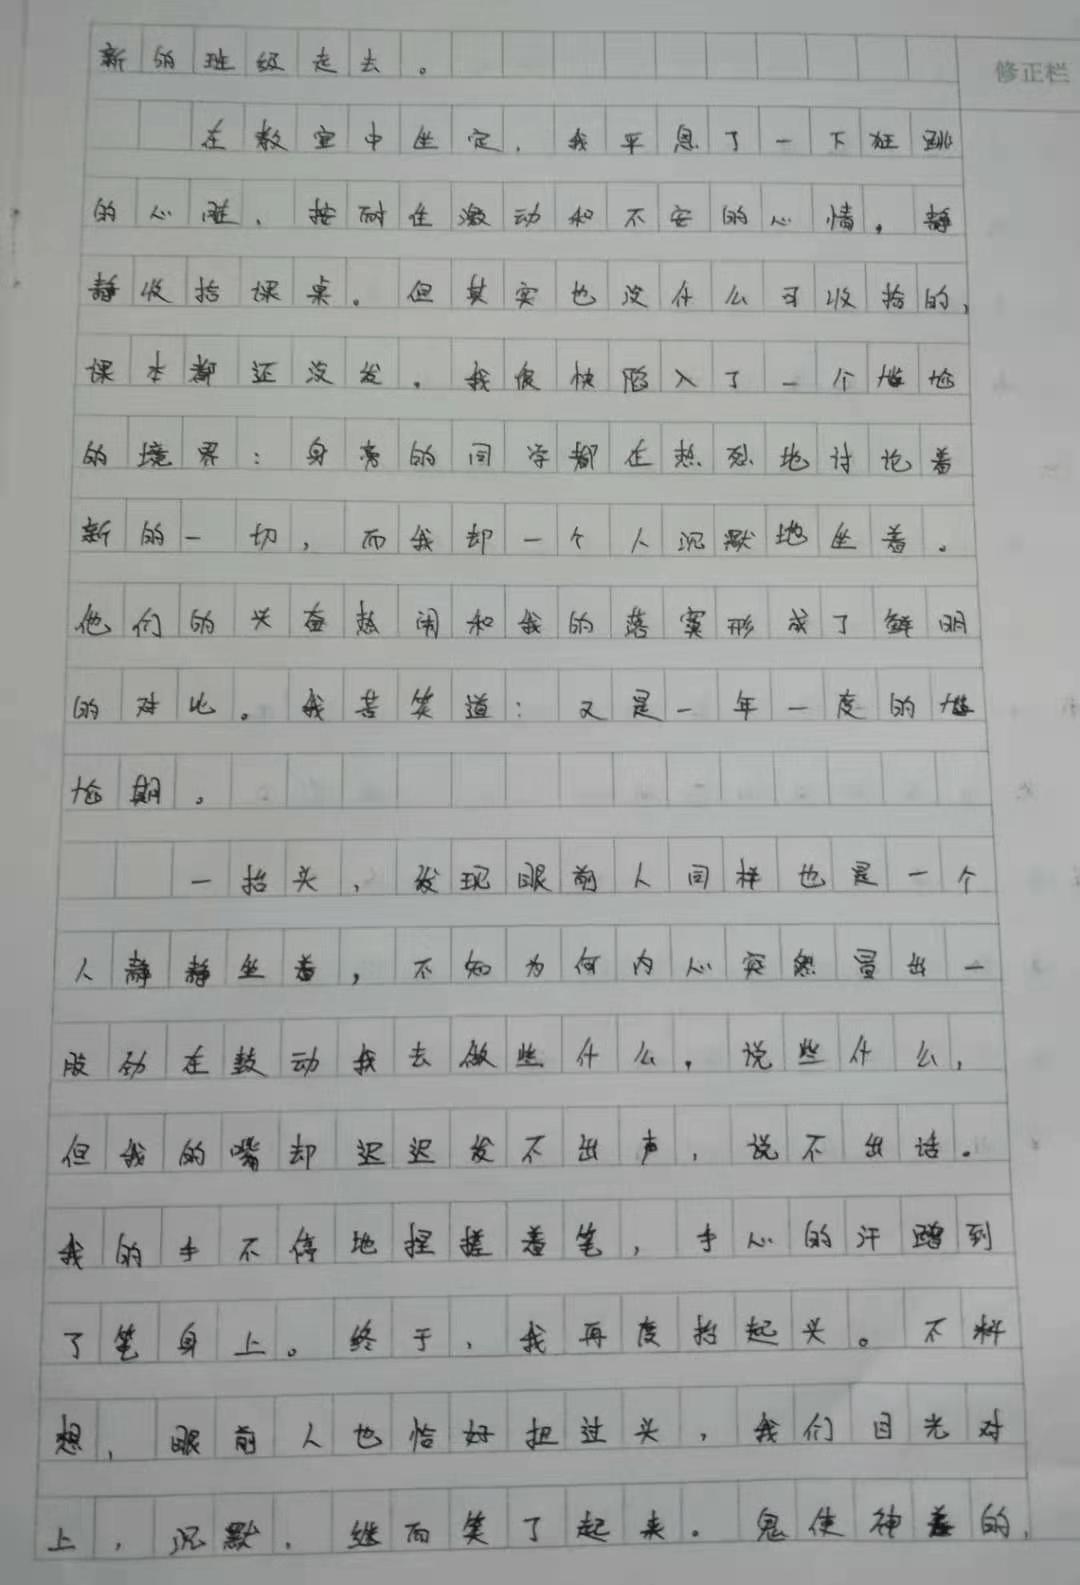 新的班级走去。
修正栏
在教室中坐定，我平息了一下狂跳
的心脏，按耐住激动和不安的心情，静
静收拾课桌。但其实也没什么可收拾的，
课本都还没发。我很快陷入了一个尴尬
的境界：身旁的同学都在热烈地讨论着
新的一切，而我却一个人沉默地坐着。
他们的兴奋热闹和我的落寞形成了鲜明
的对比。我苦笑道：又是一年一度的尴
尬期。
一抬头，发现眼前人同样也是一个
人静静坐着，不知为何内心突然冒出一
股劲在鼓动我去做些什么，说些什么，
但我的嘴却迟迟发不出声，说不出话。
我的手不停地捏搓着笔，手心的汗蹭到
了笔身上。终于，我再度抬起头。不料
想，眼前人也恰好扭过头，我们目光对
上，沉默，继而笑了起来。鬼使神差的，